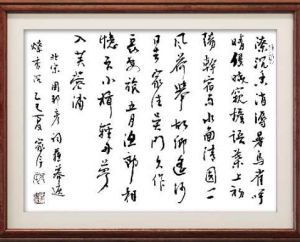 燎沉香消溽暑鸟雀呼
晴侵晓窥檐语葉上初
陽幹宿雨水面清圓一一
風荷舉故鄉遥何
日去家住吴門久作
長安旅五月渔郎相
憶否小楫轻舟夢
入芙蓉浦
北宋周邦彦词蘇幕遮
燎沉香 乙巳夏